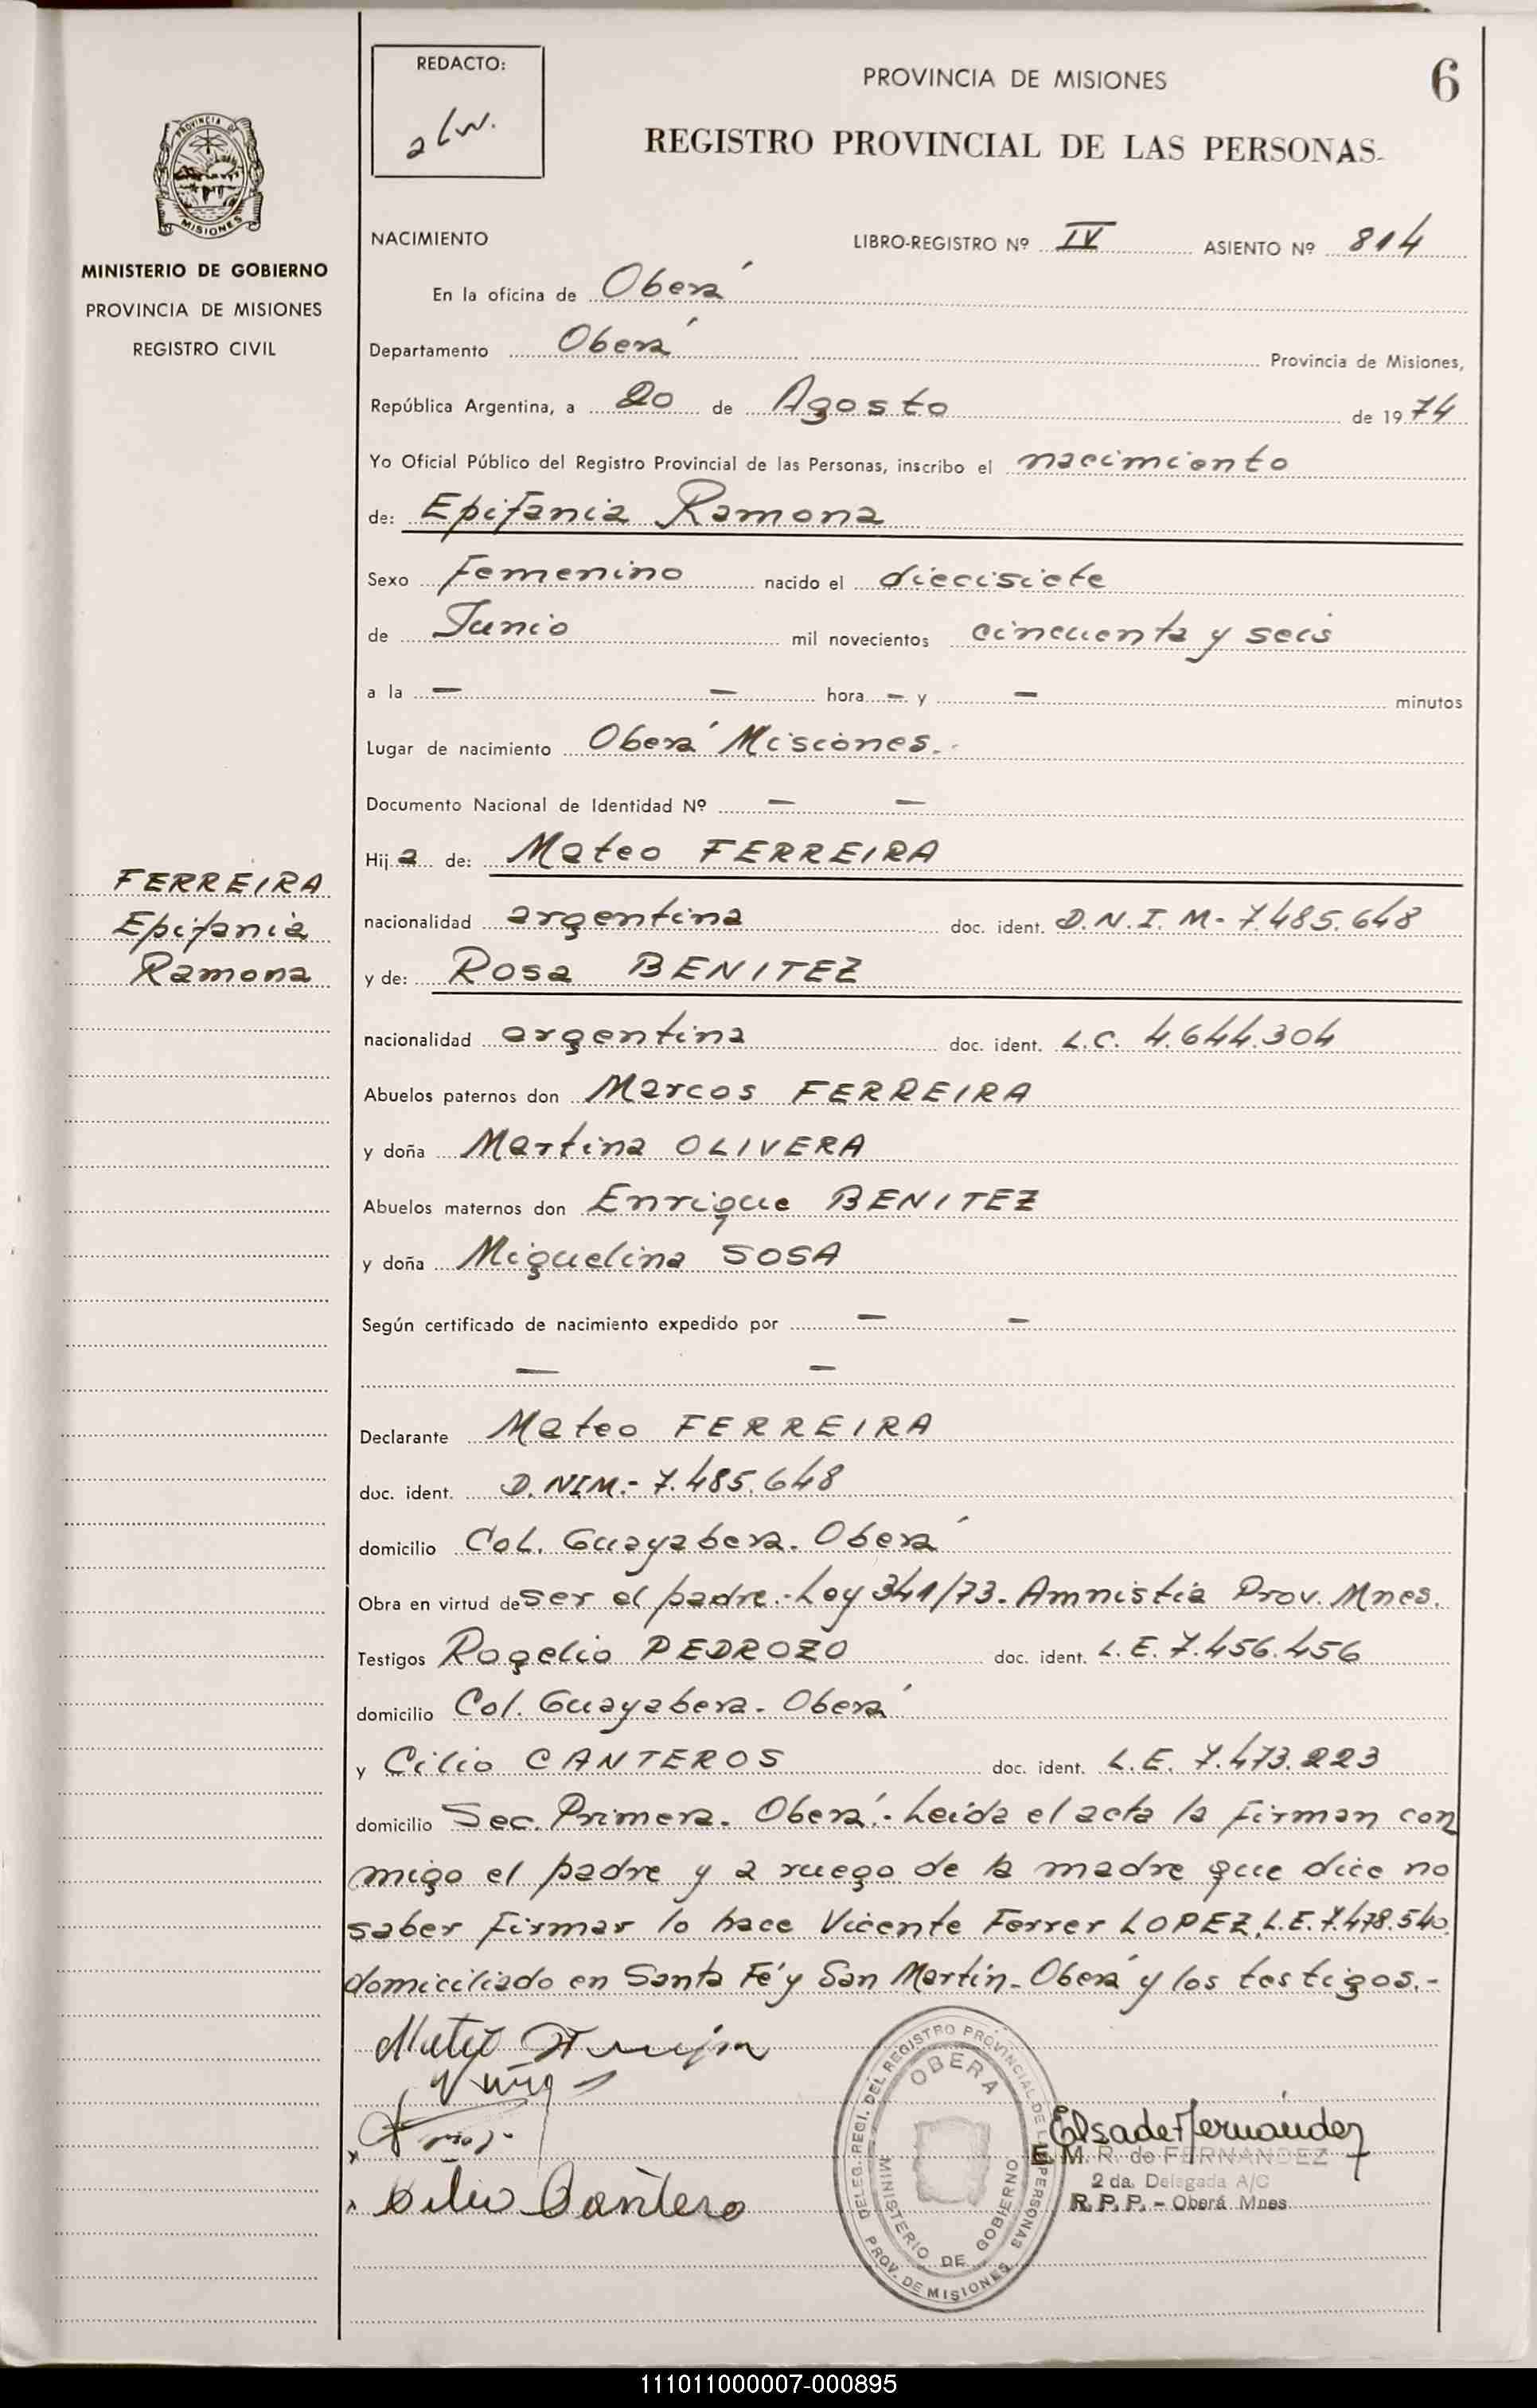 REDACTO:
PROVINCIA DE MISIONES
6
REGISTRO PROVINCIAL DE LAS PERSONAS
PROVINCIA DE
MISIONES
MINISTERIO DE GOBIERNO
PROVINCIA DE MISIONES
REGISTRO CIVIL
NACIMIENTO LIBRO-REGISTRO Nº IV ASIENTO Nº 814
En la oficina de Oberá
Departamento Oberá Provincia de Misiones,
República Argentina, a 20 de Agosto de 1974
Yo Oficial Público del Registro Provincial de las Personas, inscribo el nacimiento
de: Epifania Ramona
Sexo Femenino nacido el diecisiete
de Junio mil novecientos cincuenta y seis
a la — — hora — y — minutos
Lugar de nacimiento Oberá Misiones.
Documento Nacional de Identidad Nº — —
Hija de: Mateo FERREIRA
FERREIRA
Epifania
Ramona
nacionalidad argentina doc. ident. D.N.I. M- 7.485.648
y de: Rosa BENITEZ
nacionalidad argentina doc. ident. L.C. 4.644.304
Abuelos paternos don Marcos FERREIRA
y doña Martina OLIVERA
Abuelos maternos don Enrique BENITEZ
y doña Miguelina SOSA
Según certificado de nacimiento expedido por — —
— —
Declarante Mateo FERREIRA
doc. ident. D.NIM.- 7.485.648
domicilio Col. Guayabera. Oberá
Obra en virtud de ser el padre.- Ley 341/73. Amnistia Prov. Mnes.
Testigos Rogelio PEDROZO doc. ident. L.E. 7.456.456
domicilio Col. Guayabera. Oberá
y Cilio CANTEROS doc. ident. L.E. 7.473.223
domicilio Sec. Primera. Oberá.- Leida el acta la firman con
migo el padre y a ruego de la madre que dice no
saber firmar lo hace Vicente Ferrer LOPEZ, L.E. 7.478.540
domiciliado en Santa Fé y San Martín- Oberá y los testigos.-
DELEG. REGI. DEL REGISTRO PROVINCIAL DE LAS PERSONAS
OBERA
MINISTERIO DE GOBIERNO
PROV. DE MISIONES
Elsa de Fernández
E. M. R. de FERNANDEZ
2 da. Delegada A/C
R. P. P. - Oberá Mnes.
Cilio Cantero
111011000007-000895